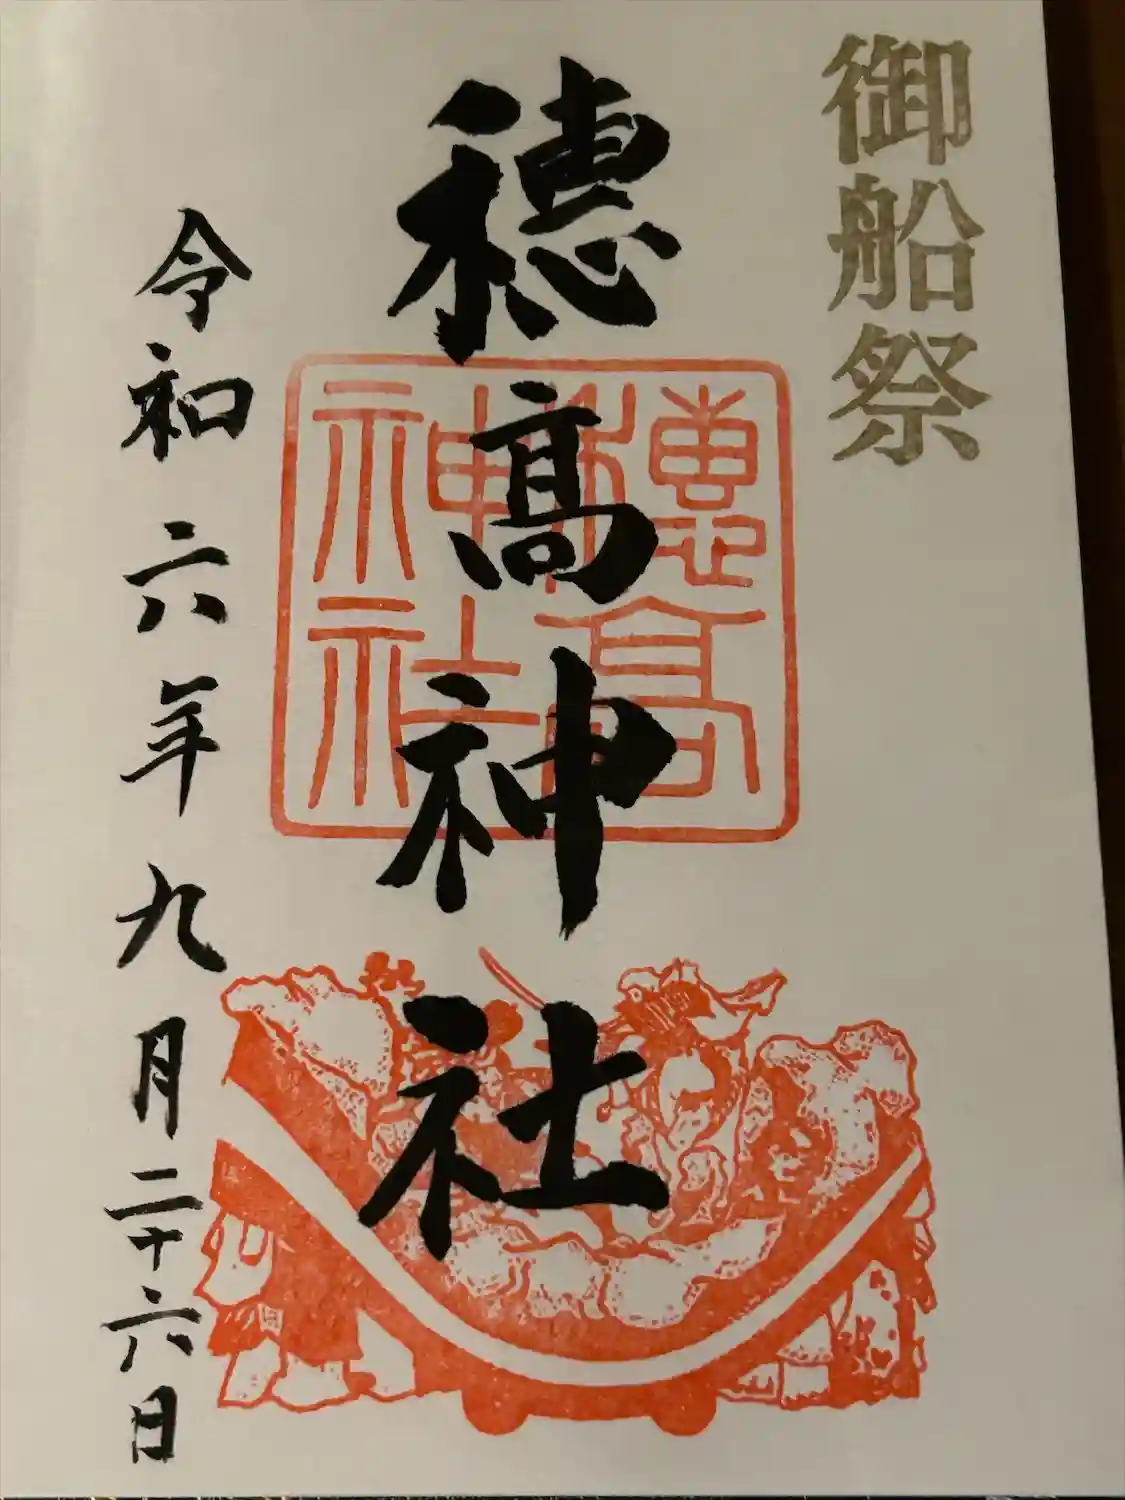 御船祭
穂髙神社
穂高神社
令和六年九月二十六日